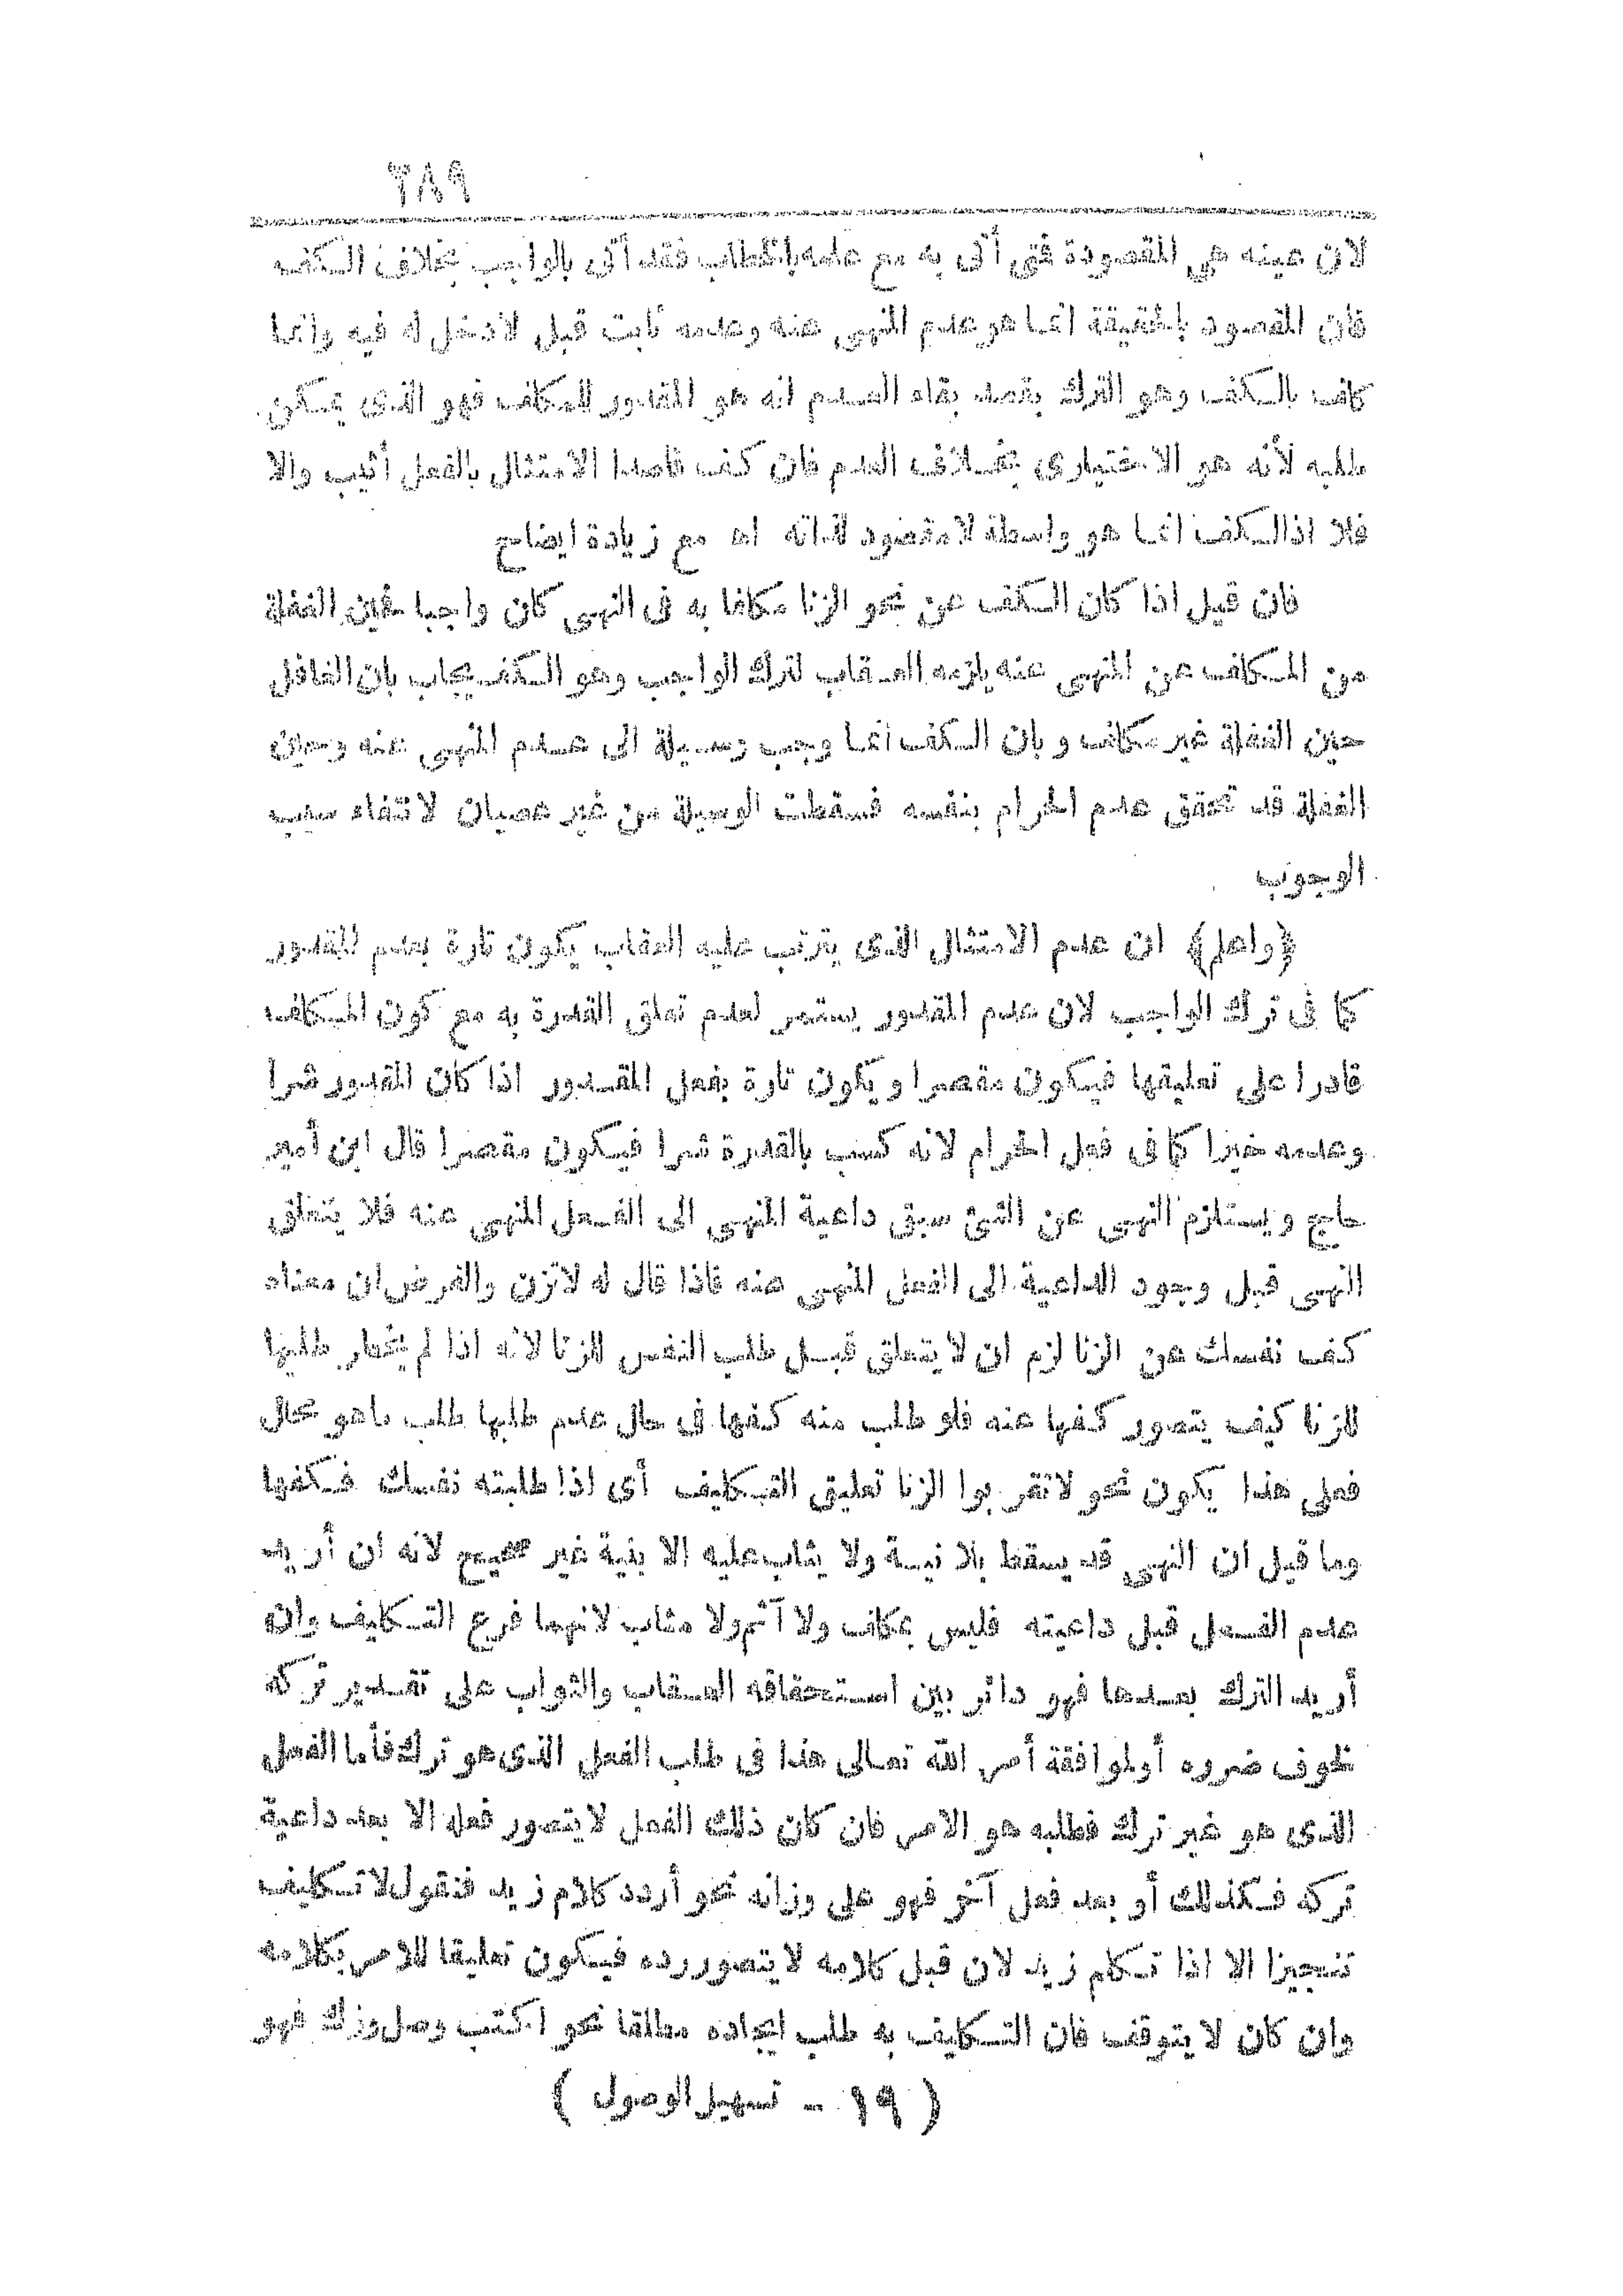 ٢٨٩
لان عينه هي المقصودة فتى أتى به مع علمه بالخطاب فقد أتى بالواجب بخلاف الكف
فان المقصود بالحقيقة انما هو عدم المنهى عنه وعدمه ثابت قبل لا دخل له فيه وانما
كلف بالكف وهو الترك بقصد بقاء العدم انه هو المقدور للمكلف فهو الذى يمكن
طلبه لأنه هو الاختيارى بخلاف العدم فان كف قاصدا الامتثال بالفعل أثيب والا
فلا اذ الكف انما هو واسطة لا مقصود لذاته اه مع زيادة ايضاح
فان قيل اذا كان الكف عن نحو الزنا مكلفا به فى النهى كان واجبا فحين الغفلة
من المكلف عن المنهى عنه يلزمه العقاب لترك الواجب وهو الكف يجاب بان الغافل
حين الغفلة غير مكلف وبان الكف انما وجب وسيلة الى عدم المنهى عنه وحين
الغفلة قد تحقق عدم الحرام بنفسه فسقطت الوسيلة من غير عصيان لانتفاء سبب
الوجوب
﴿واعلم﴾ ان عدم الامتثال الذى يترتب عليه العقاب يكون تارة بعدم المقدور
كما فى ترك الواجب لان عدم المقدور يستمر لعدم تعلق القدرة به مع كون المكلف
قادرا على تعليقها فيكون مقصرا ويكون تارة بفعل المقدور اذا كان المقدور شرا
وعدمه خيرا كما فى فعل الحرام لانه كسب بالقدرة شرا فيكون مقصرا قال ابن أمير
حاج ويستلزم النهى عن الشئ سبق داعية المنهى الى الفعل المنهى عنه فلا يتعلق
النهى قبل وجود الداعية الى الفعل المنهى عنه فاذا قال له لا تزن والفرض ان معناه
كف نفسك عن الزنا لزم ان لا يتعلق قبل طلب النفس للزنا لانه اذا لم يخطر طلبها
للزنا كيف يتصور كفها عنه فلو طلب منه كفها فى حال عدم طلبها طلب ما هو محال
فعلى هذا يكون نحو لا تقربوا الزنا تعليق التكليف أى اذا طلبته نفسك فكفها
وما قيل ان النهى قد يسقط بلا نية ولا يثاب عليه الا بنية غير صحيح لانه ان أريد
عدم الفعل قبل داعيته فليس بمكلف ولا آثم ولا مثاب لانهما فرع التكليف وان
أريد الترك بعدها فهو دائر بين استحقاقه العقاب والثواب على تقدير تركه
لخوف ضروه أو لموافقة أمر الله تعالى هذا فى طلب الفعل الذى هو ترك فأما الفعل
الذى هو غير ترك فطلبه هو الامر فان كان ذلك الفعل لا يتصور فعله الا بعد داعية
تركه فكذلك أو بعد فعل آخر فهو على وزانه نحو أردد كلام زيد فنقول لا تكليف
تنجيزا الا اذا تكلم زيد لان قبل كلامه لا يتصور رده فيكون تعليقا للامر بكلامه
وان كان لا يتوقف فان التكليف به طلب ايجاده مطلقا نحو اكتب وصل وزك فهو
( ١٩ - تسهيل الوصول )